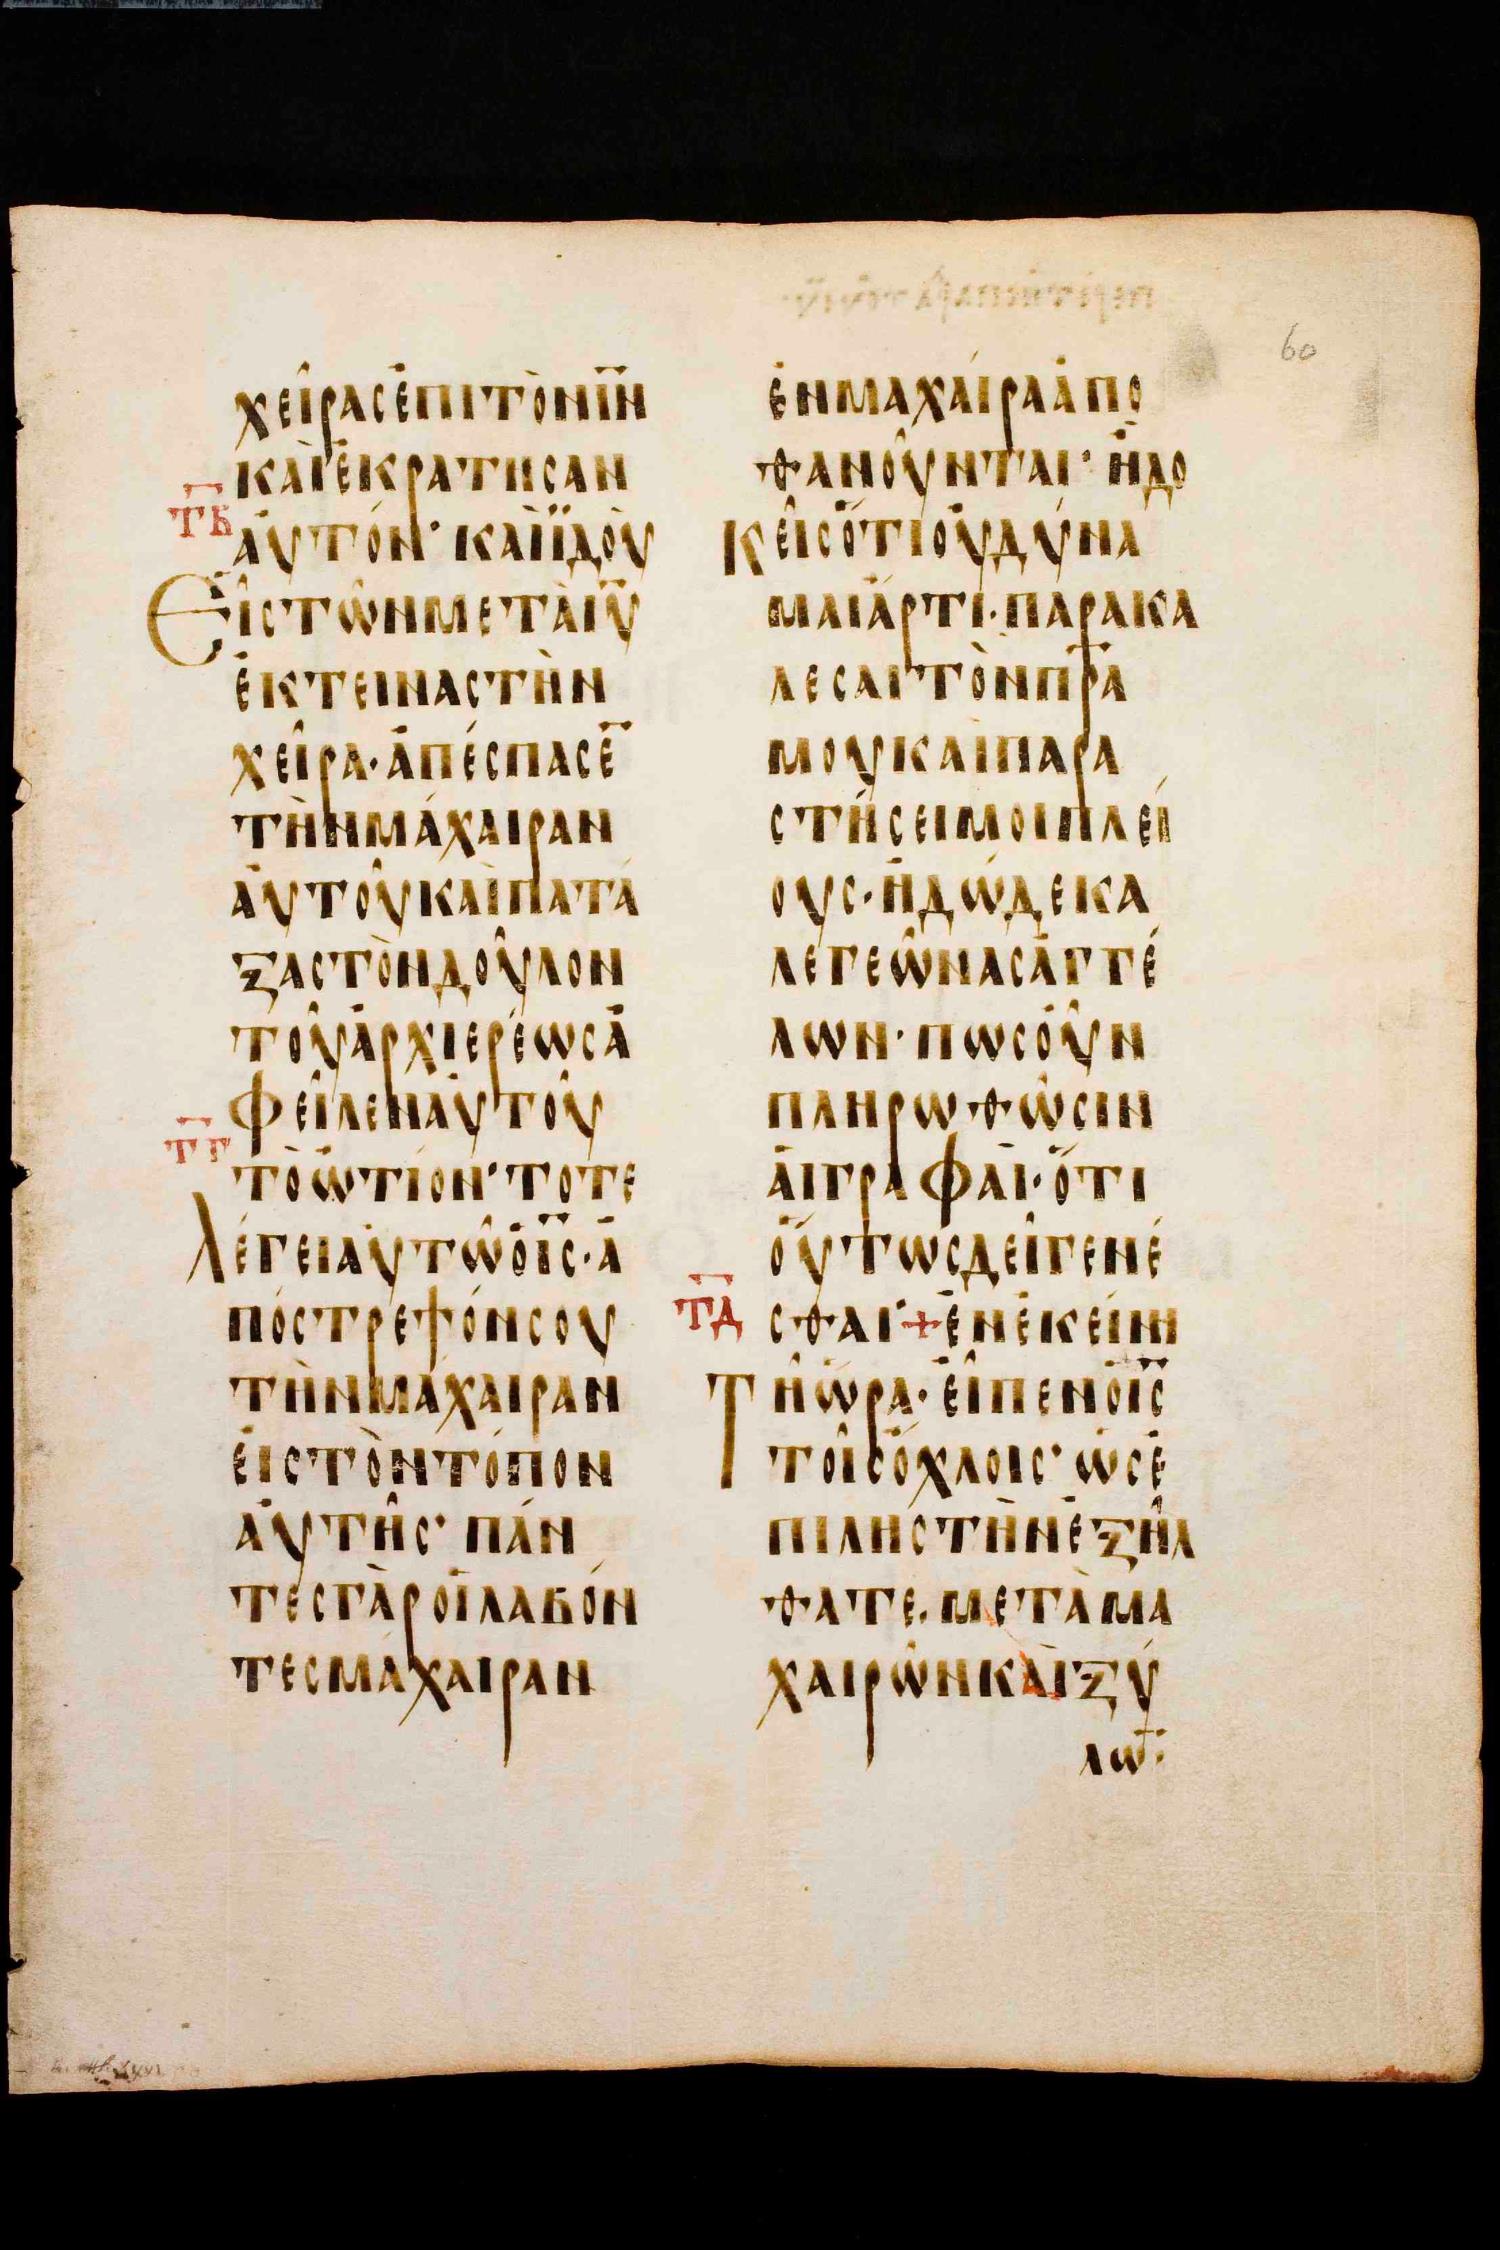 60
χεῖρας ἐπὶ τὸν ῑν̄
καὶ ἐκράτησαν
τ̄β̄
αὐτόν· καὶ ἰδοὺ
Εἷς τῶν μετὰ ῑῡ
ἐκτεινας τὴν
χεῖρα· ἀπέσπασε̄
τὴν μάχαιραν
αὐτοῦ καὶ πατά
ξας τὸν δοῦλον
τοῦ ἀρχιερέως ἀ
φεῖλεν αὐτοῦ
τ̄γ̄
τὸ ὠτίον· τοτε
λέγει αὐτῶ ὁ ῑς̄· ἀ
πόστρεψόν σου
τὴν μάχαιραν
εἰς τὸν τόπον
αὐτῆς· πάν
τες γὰρ οἱ λαβόν
τες μάχαιραν
ἐν μαχαίρα ἀπο
θανοῦνται· ἢ δο
Κεῖς ὅτι οὐ δύνα
μαι ἄρτι· παρακα
λεσαι τὸν π̄ρ̄ᾱ
μου καὶ παρα
στήσει μοι πλεί
ους· ἢ δώδεκα
λεγεῶνας ἀγγέ
λων· πως οὖν
πληρωθῶσιν
ἁι γραφαὶ· ὅτι
οὕτως δεῖ γενέ
τ̄δ̄
σθαι· + ἐν ἐκείνη
Τῆ ὥρα· εἶπεν ὁ ῑς̄
τοῖς ὄχλοις· ὡς ἐ
πι ληστὴν ἐξήλ
θατε. μετὰ μα
χαιρῶν καὶ ξύ
λω̄: